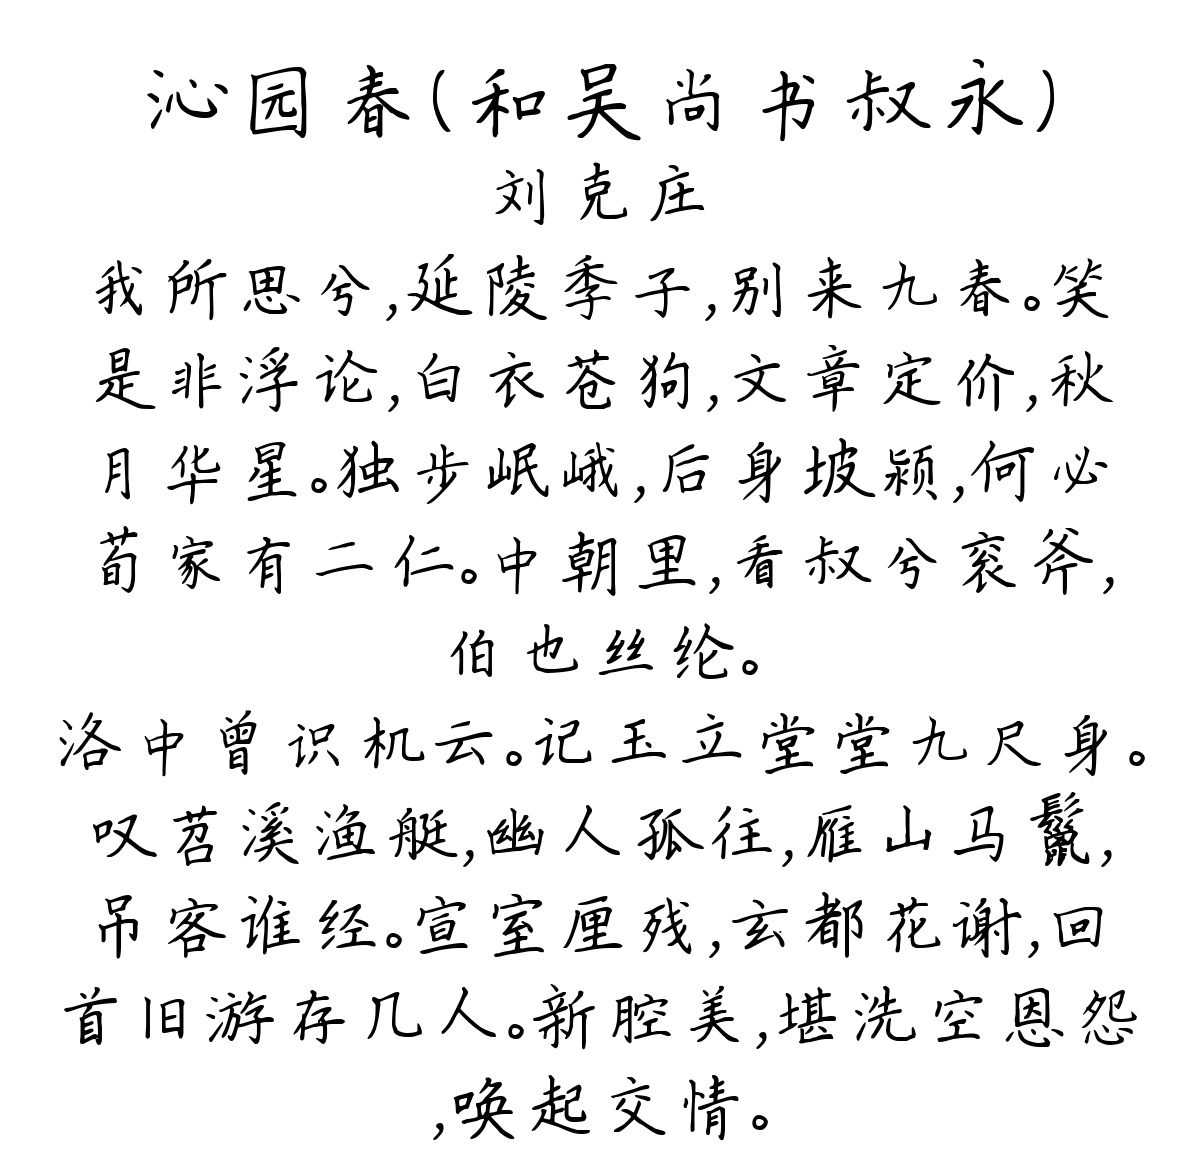 沁园春(和吴尚书叔永)
刘克庄
我所思兮,延陵季子,别来九春。笑
是非浮论,白衣苍狗,文章定价,秋
月华星。独步岷峨,后身坡颍,何必
荀家有二仁。中朝里,看叔兮衮斧,
伯也丝纶。
洛中曾识机云。记玉立堂堂九尺身。
叹苕溪渔艇,幽人孤往,雁山马鬣,
吊客谁经。宣室厘残,玄都花谢,回
首旧游存几人。新腔美,堪洗空恩怨
,唤起交情。